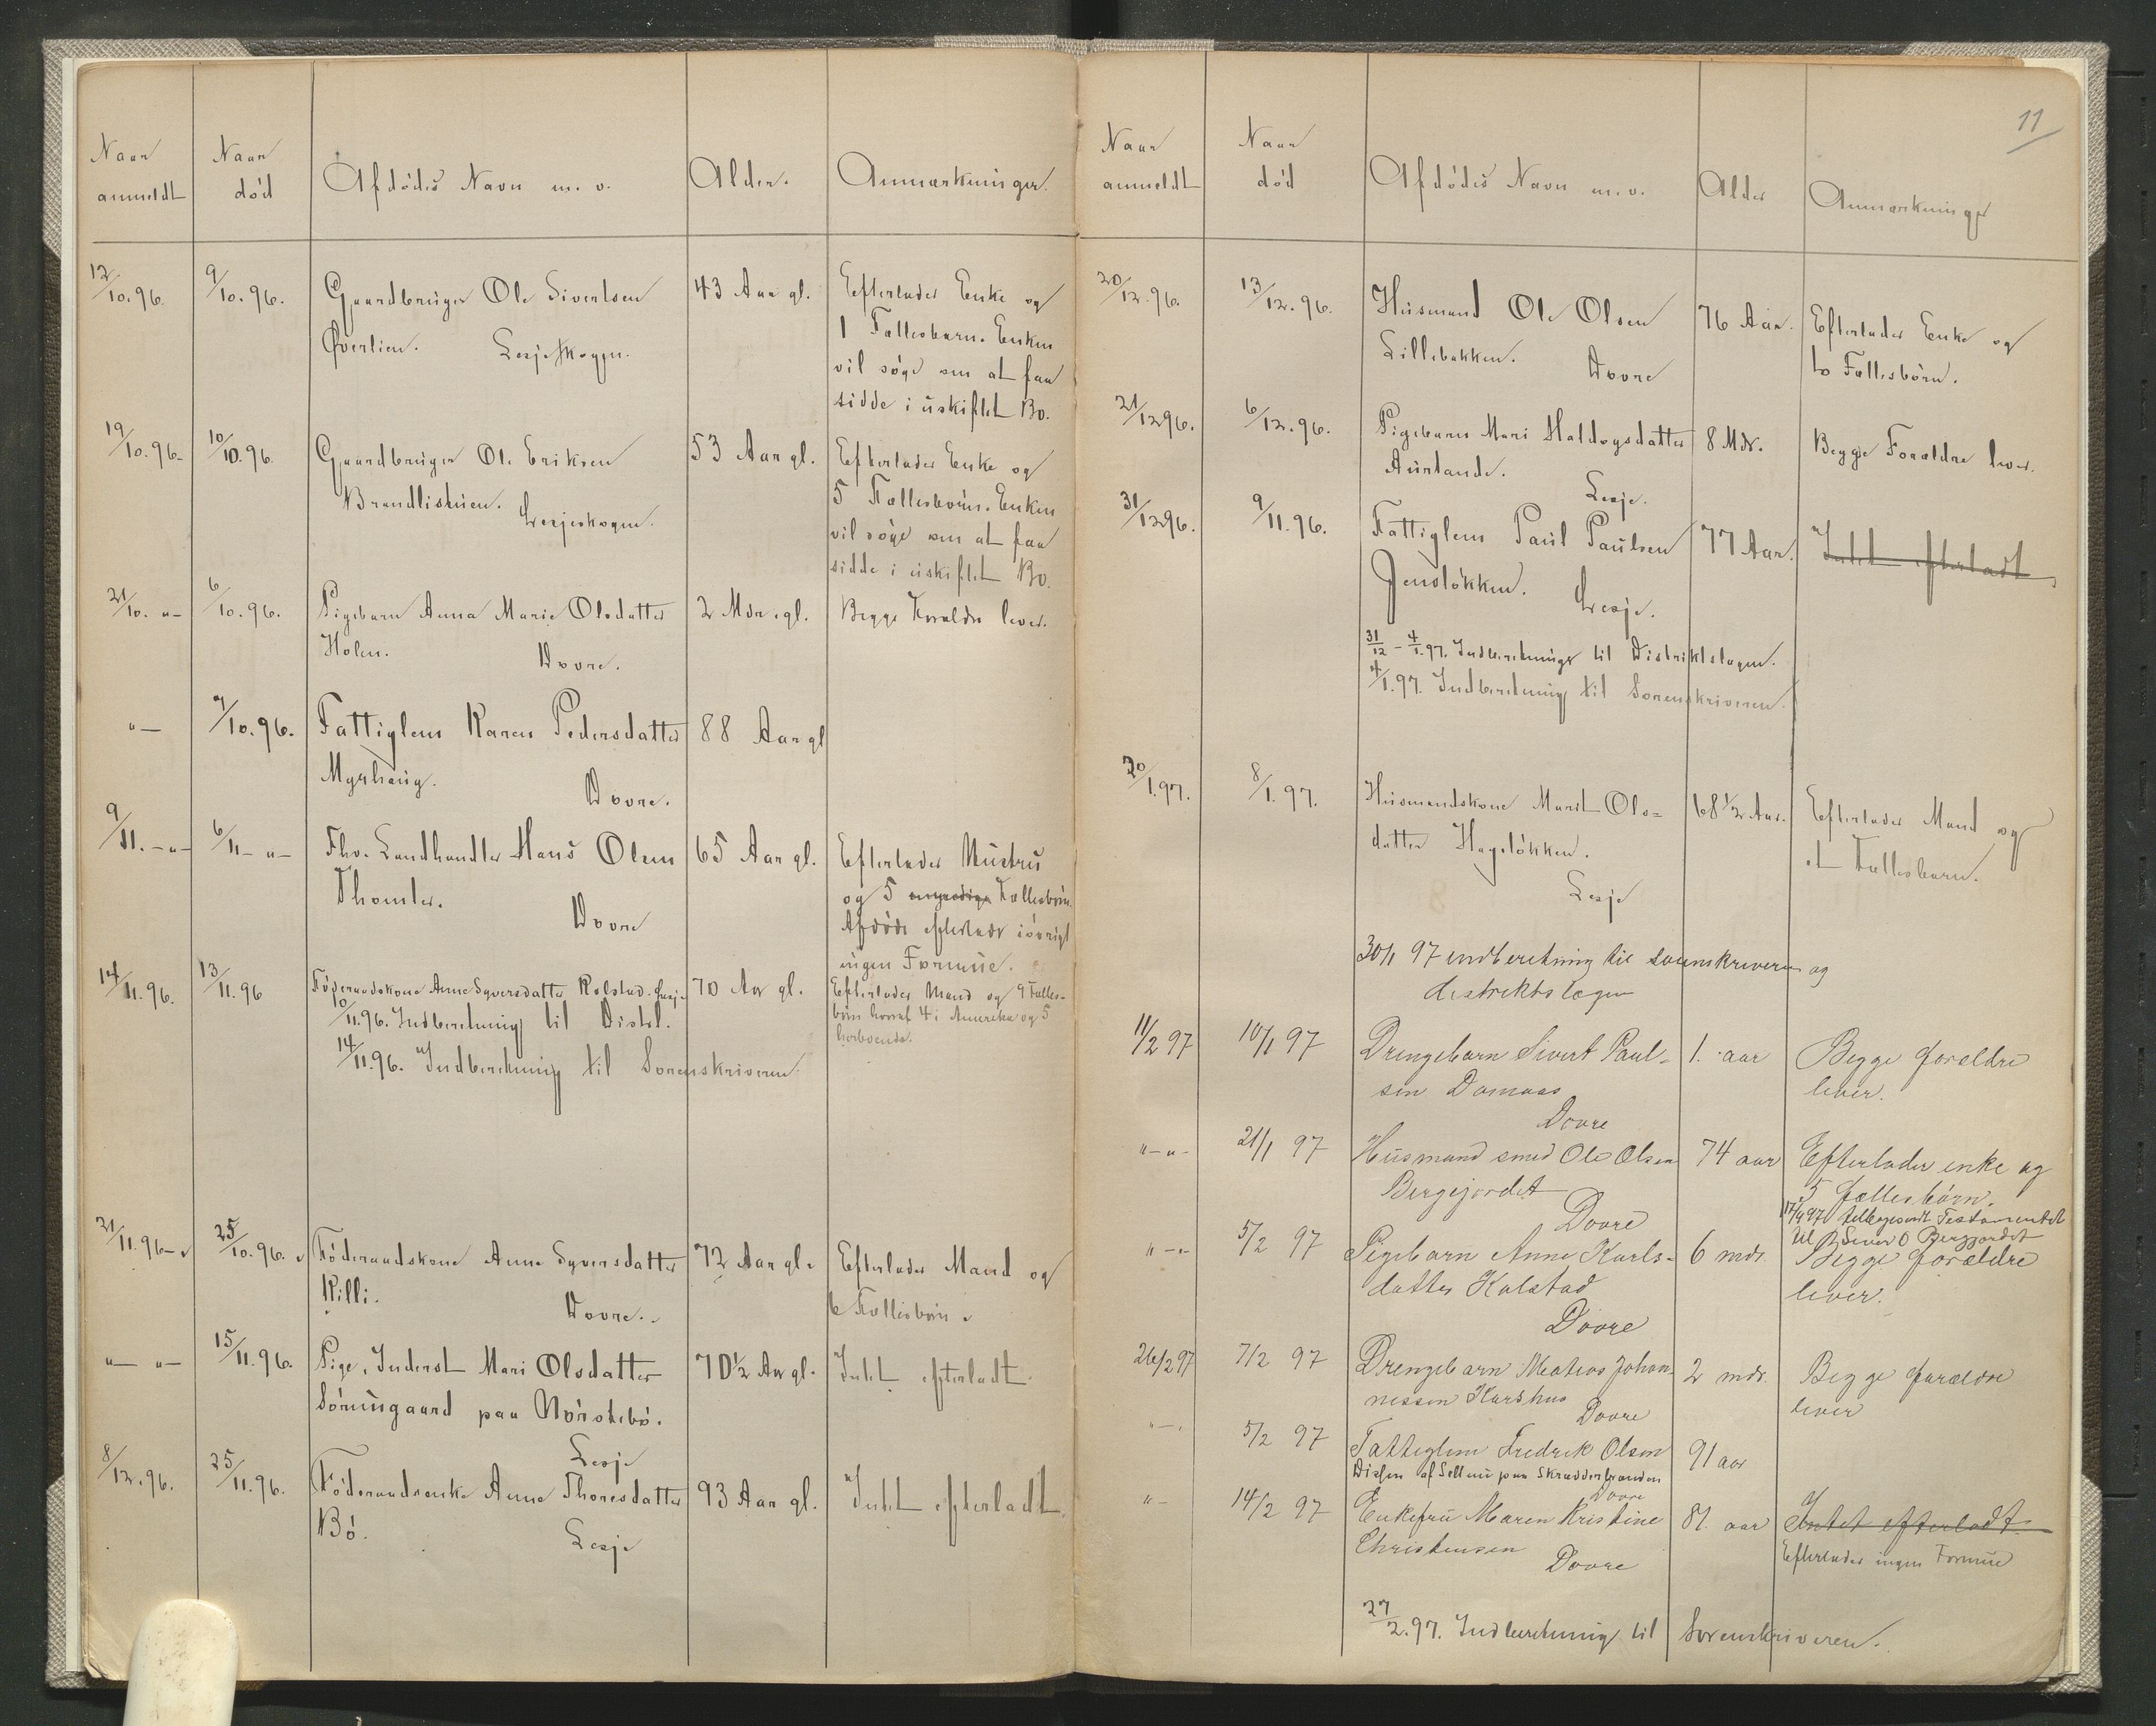 Naar anmeldt
Naar død
Afdødes Navn m. v.
Alder.
Anmærkninger.
12/10. 96.
9/10. 96.
Gaardbruger Ole Sivertsen
43 Aar gl.
Efterlader Enke og
Øverlien. Lesjeskogen.
1 Fællesbarn. Enken
vil søge om at faa
sidde i uskiftet Bo.
19/10. 96.
10/10. 96.
Gaardbruger Ole Eriksen
53 Aar gl.
Efterlader Enke og
Brandlistuen. Lesjeskogen.
5 Fællesbørn. Enken
vil søge om at faa
sidde i uskiftet Bo.
21/10. "-
6/10. 96.
Pigebarn Anna Marie Olsdatter
2 Mdr. gl.
Begge Forældre lever.
Holen. Dovre.
"-
7/10. 96.
Fattiglem Karen Pedersdatter
88 Aar gl
Myrhaug. Dovre.
9/11. -"-
6/11 -"-
Fhv. Landhandler Hans Olsen
65 Aar gl.
Efterlader Hustru
Thomler. Dovre
og 5 Fællesbørn.
Afdøde efterlader iøvrigt
ingen Formue.
14/11. 96.
13/11. 96
Føderaadskone Anne Syversdatter Rolstad. Lesje
70 Aar gl.
Efterlader Mand og 9 Fælles-
børn hvoraf 4 i Amerika og 5
herboende.
10/11. 96. Indberetning til Distrl.
14/11. 96. Indberetning til Sorenskriveren.
21/11. 96
25/10. 96.
Føderaadskone Anne Syversdatter
72 Aar gl.
Efterlader Mand og
Killi. Dovre.
6 Fællesbørn.
"- "-
15/11. 96.
Pige, Inderst Mari Olsdatter
70½ Aar gl.
Intet efterladt.
Sørumgaard paa Nørstebø.
Lesje
8/12. 96.
25/11. 96.
Føderaadsenke Anne Thoresdatter
93 Aar gl.
Intet efterladt.
Bø. Lesje
11
Naar anmeldt
Naar død
Afdødes Navn m. v.
Alder
Anmærkninger
20/12. 96.
13/12. 96.
Husmand Ole Olsen
76 Aar.
Efterlader Enke og
Lillebakken. Dovre
to Fællesbørn.
21/12 96.
6/12. 96.
Pigebarn Mari Haldogsdatter
8 Mdr.
Begge Forældre lever.
Aurlande. Lesje.
31/12 96.
9/11. 96.
Fattiglem Paul Paulsen
77 Aar.
Intet efterladt
Jensløkken. Lesje.
31/12 - 4/1. 97. Indberetninger til Distriktslægen.
4/1. 97. Indberetning til Sorenskriveren.
20/1. 97.
8/1. 97.
Husmandskone Marit Ols-
68½ Aar.
Efterlader Mand og
datter Hageløkken.
et Fællesbarn.
Lesje
30/1 97 indberetning til sorenskriveren og
distriktslægen
11/2 97
10/1 97
Drengebarn Sivert Paul-
1. aar
Begge forældre
sen Domaas
lever.
Dovre
"-"-
21/1 97
Husmand smed Ole Olsen
74 aar
Efterlader enke og
Bergejordet
5 fællesbørn.
Dovre
17/4 97 tilbagesendt Testamentet
til Siver O Bergjordet
"-"-
5/2 97
Pigebarn Anne Karls-
6 mdr.
Begge forældre
datter Kolstad
lever.
Dovre
26/2 97
7/2 97
Drengebarn Mathias Johan-
2 mdr.
Begge forældre
nessen Karshus
lever
Dovre
"-"
5/2 97
Fattiglem Fredrik Olsen
91 aar
af Selleu paa Skrædderbranden
Dovre
"-
14/2 97
Enkefru Maren Kristine
81. aar
Intet efterladt
Christensen
Efterlader ingen Formue
Dovre
27/2. 97. Indberetning til Sorenskriveren.